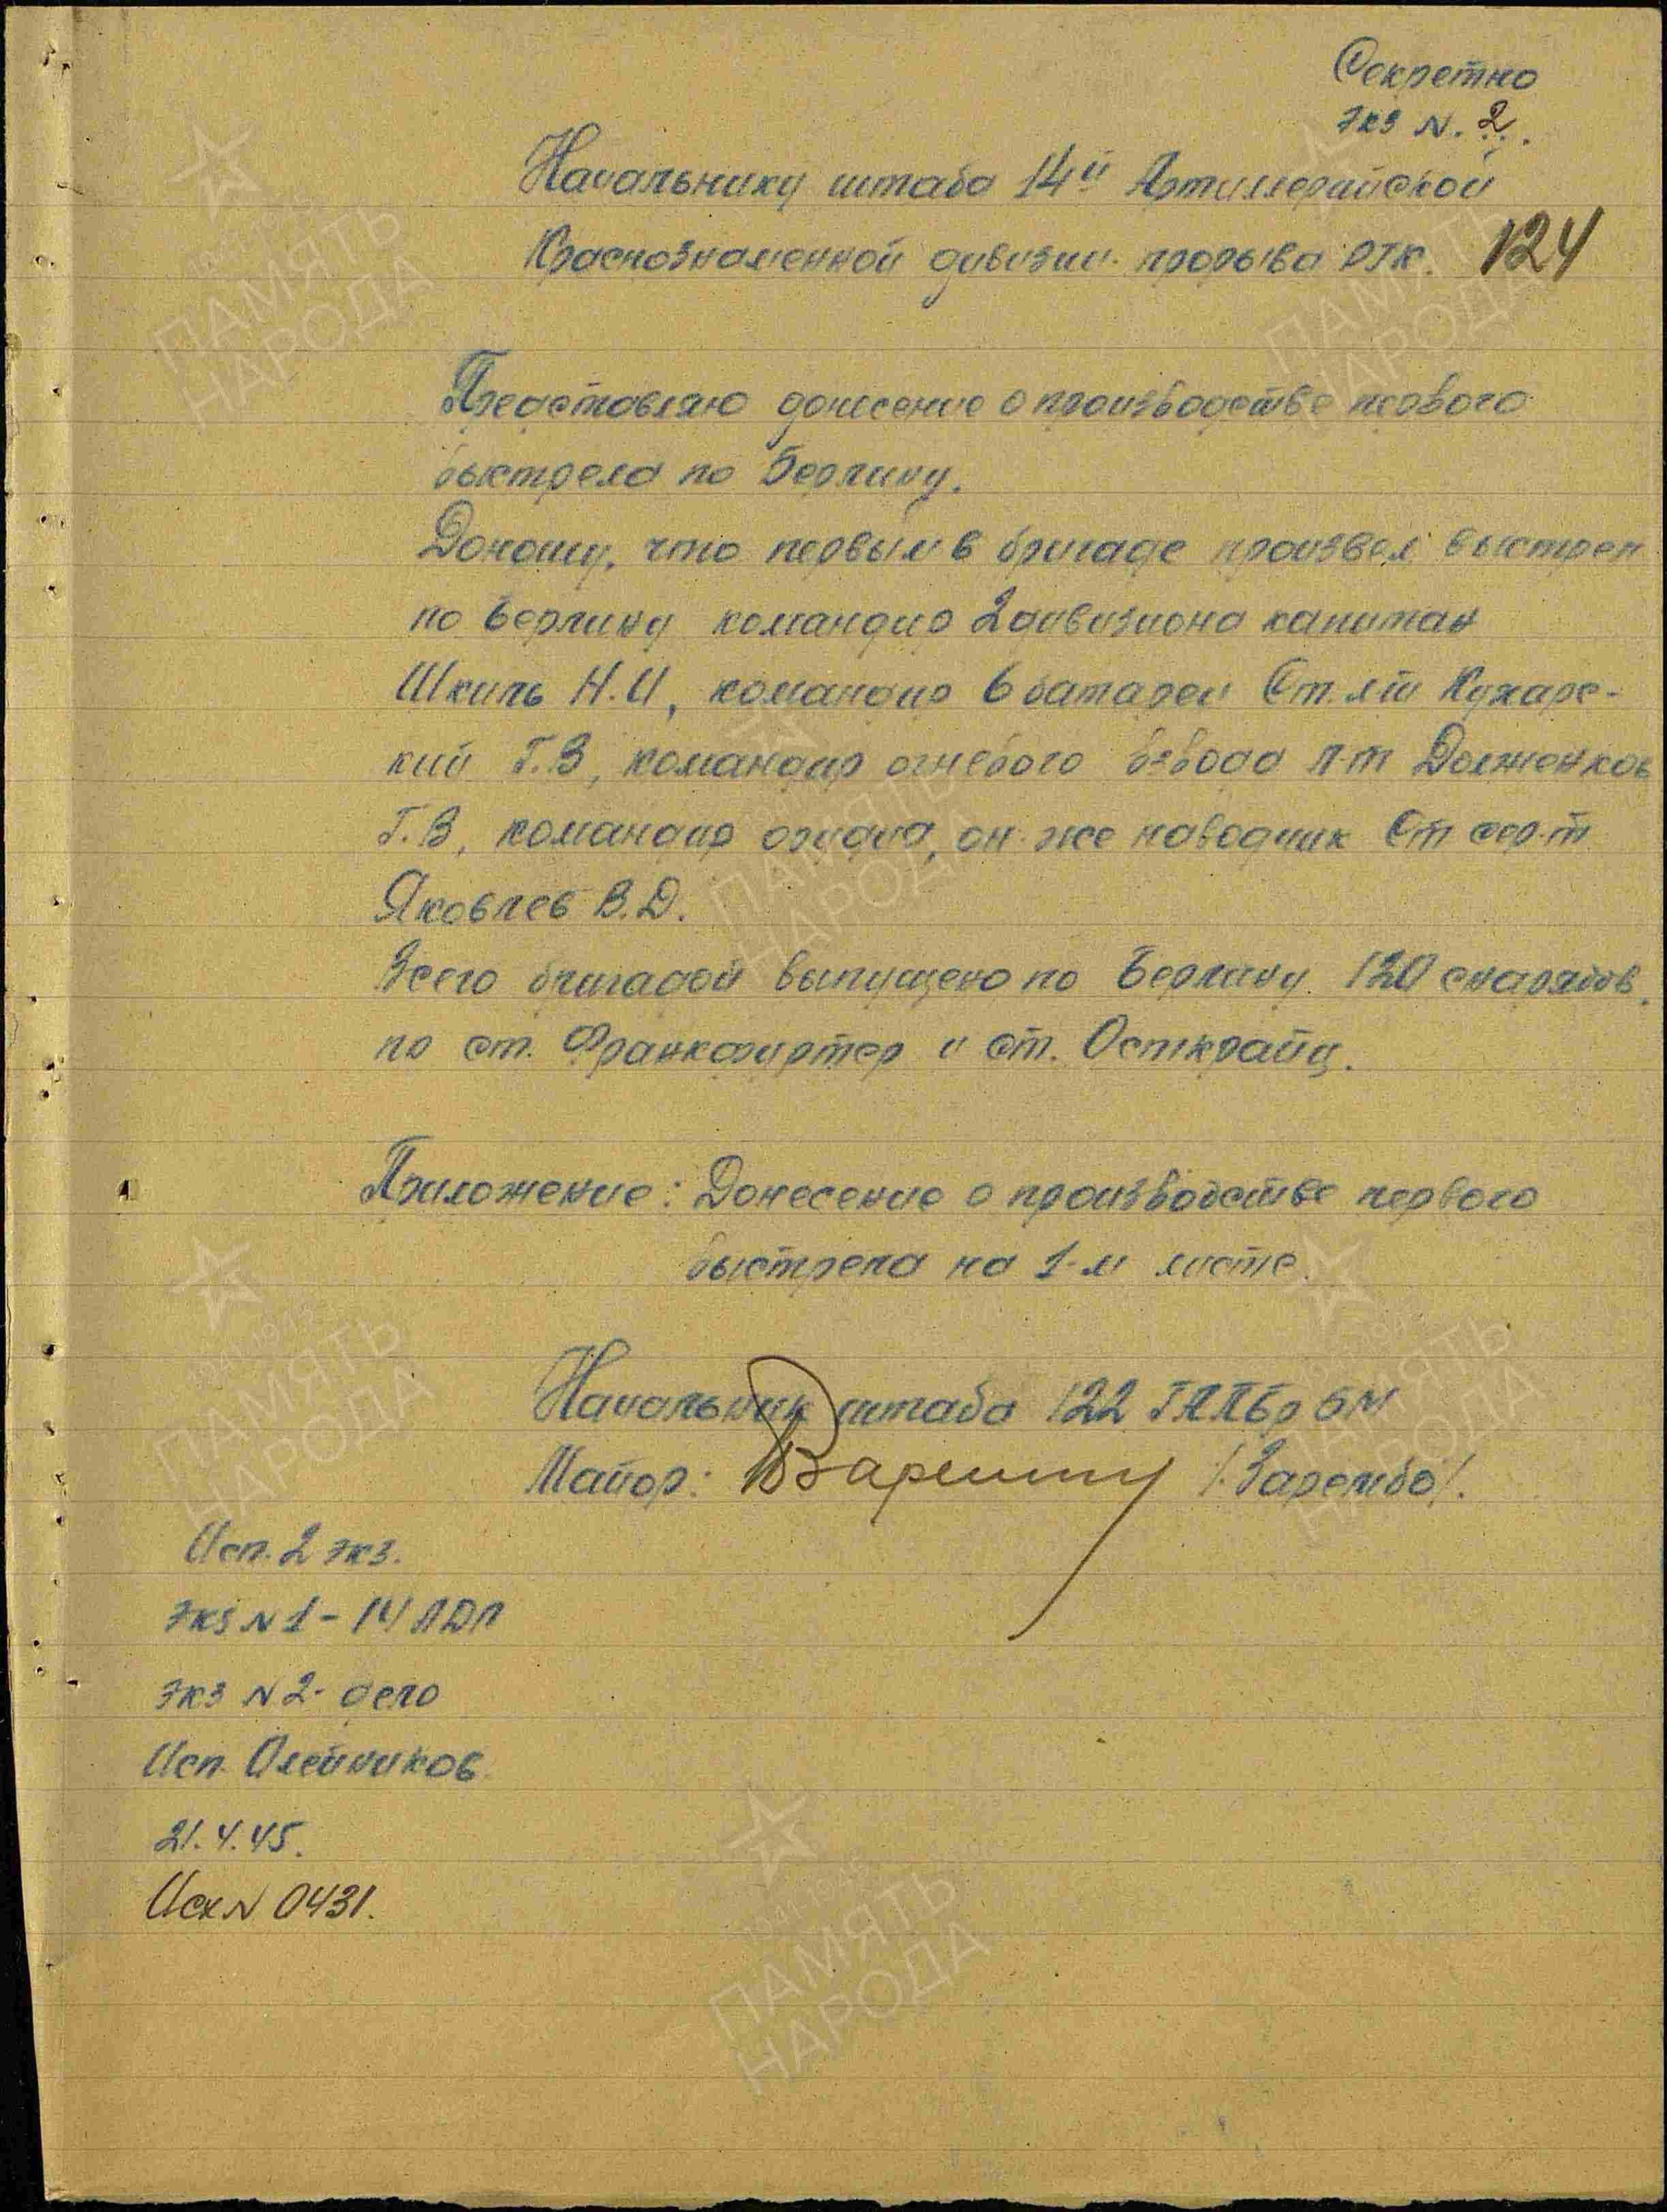 Секретно
Экз N. 2.
Начальнику штаба 14й Артиллерийской
Краснознаменной дивизии прорыва РГК. 124
Представляю донесение о производстве первого
выстрела по Берлину.
Доношу, что первым в бригаде произвел выстрел
по Берлину командир 2 дивизиона капитан
Шкиль Н.И, командир 6 батареи Ст. л-т Кухарс-
кий Г.В, командир огневого взвода л-т Долженков
Г.В, командир орудия, он же наводчик Ст сер-т
Яковлев В.Д.
Всего бригадой выпущено по Берлину 120 снарядов.
по ст. Франкфуртер и ст. Осткрайц.
Приложение: Донесение о производстве первого
выстрела на 1-м листе.
Начальник штаба 122 ГАПБр БМ
Майор: /Зарембо/.
Исп. 2 экз.
Экз N 1 - 14 АДП
экз N 2 - дело
Исп. Олейников
21.4.45.
Исх N 0431.
ПАМЯТЬ
НАРОДА